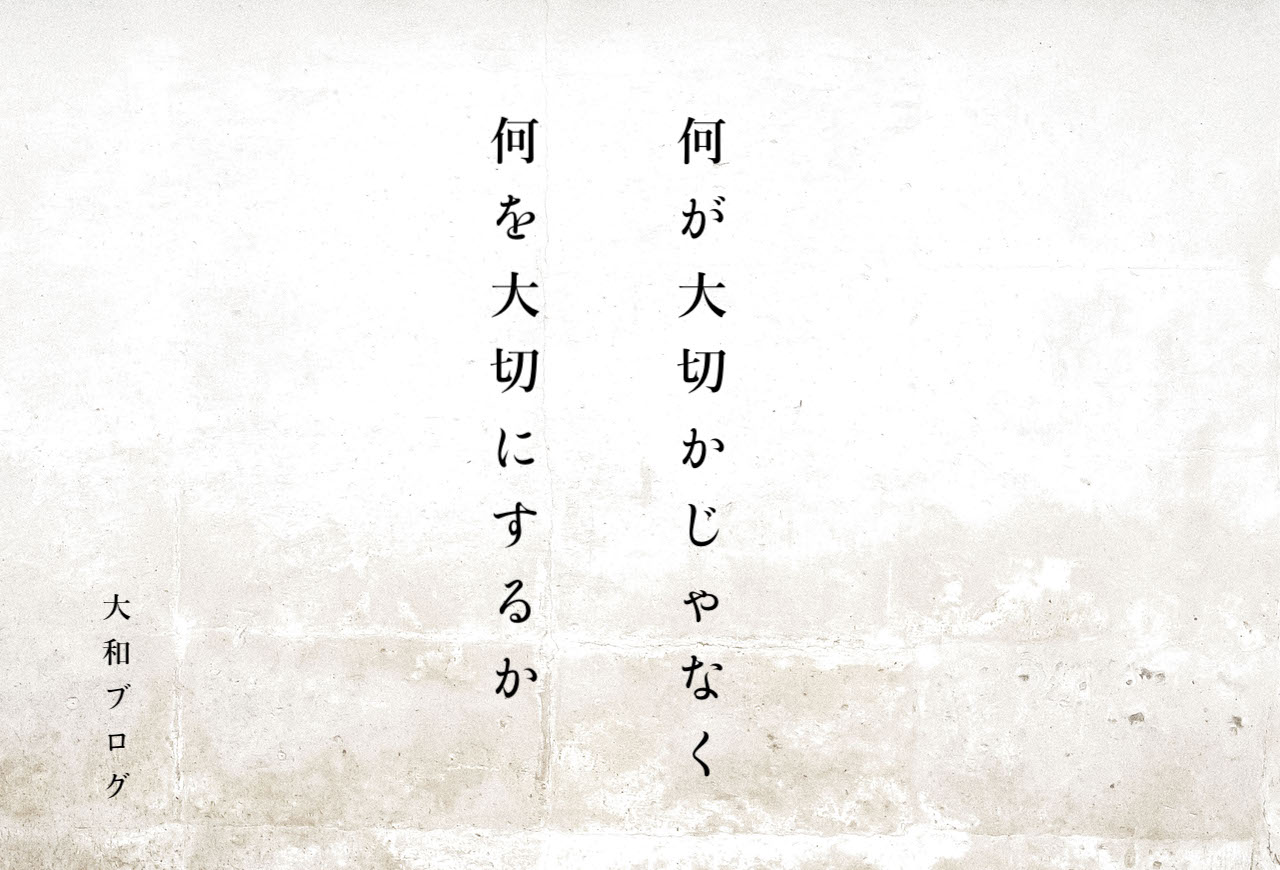 何が大切かじゃなく
何を大切にするか
大和ブログ